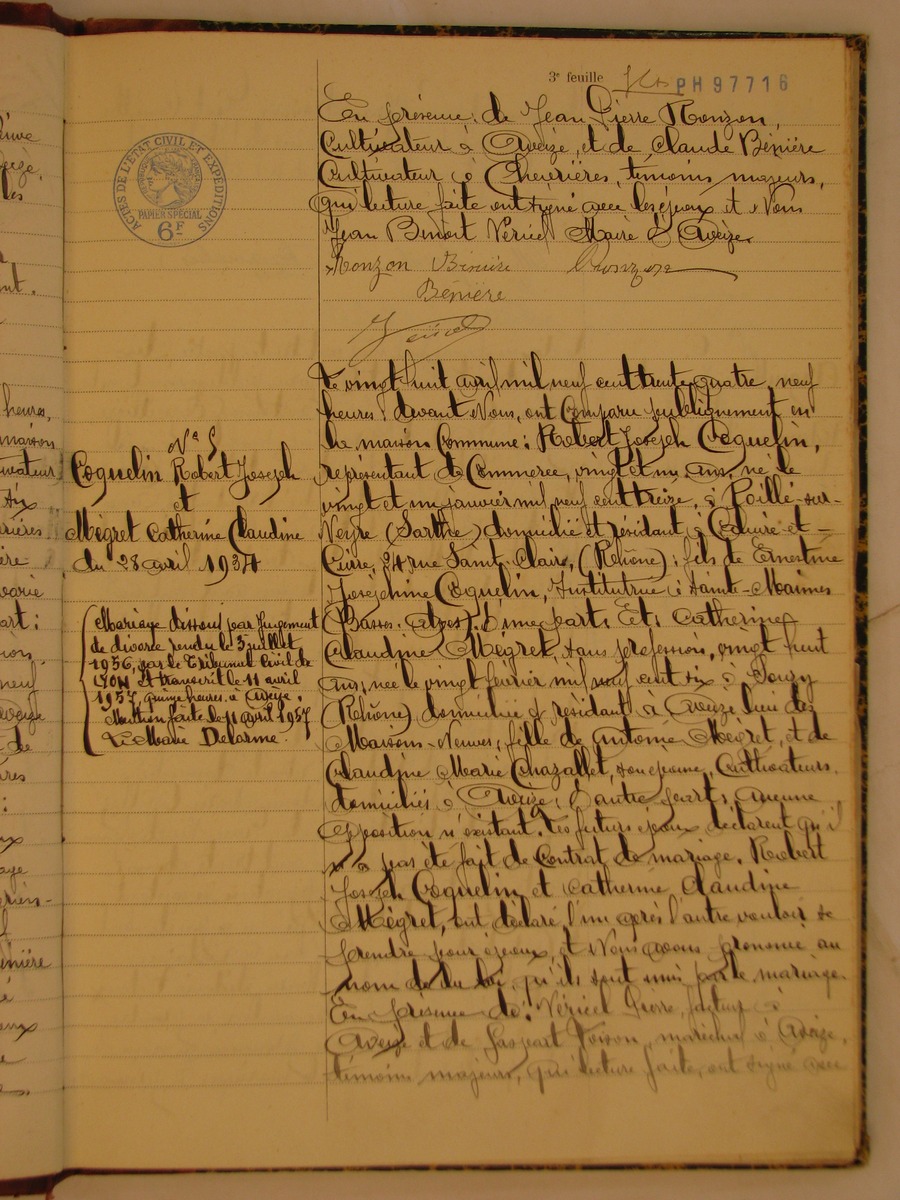 3e feuille
PH 97716
ACTES DE L'ETAT CIVIL ET EXPEDITIONS
PAPIER SPÉCIAL
6F
En présence : de Jean Pierre Ronzon,
Cultivateur à Aveize, et de Claude Bénière
Cultivateur à Chevrières, témoins majeurs,
qui lecture faite ont signé avec les époux et Nous
Jean Benoit Véricel Maire d'Aveize.
Ronzon Bénière Ronzon
Bénière
Véricel
Le vingt huit avril mil neuf cent trente quatre, neuf
heures, devant Nous, ont Comparu publiquement en
la maison Commune : Robert Joseph Coquelin,
représentant de Commerce, vingt et un ans, né le
vingt et un janvier mil neuf cent treize, à Poillé-sur-
Vègre (Sarthe) domicilié et résidant à Caluire-et-
Cuire, 24 rue Saint-Claire, (Rhône) ; fils de Ernestine
Joséphine Coquelin, Institutrice à Sainte-Maimes
(Basses-Alpes). D'une part. Et : Catherine
Claudine Mégret, sans profession, vingt huit
ans, née le vingt février mil neuf cent six à Souzy
(Rhône) domiciliée et résidant à Aveize lieu des
Maisons-Neuves, fille de Antoine Mégret, et de
Claudine Marie Chazallet, son épouse, Cultivateurs,
domiciliés à Aveize, D'autre part, aucune
opposition n'existant. Les futurs époux déclarent qu'il
n'a pas été fait de Contrat de mariage. Robert
Joseph Coquelin et Catherine Claudine
Mégret, ont déclaré l'un après l'autre vouloir se
prendre pour époux, et Nous avons prononcé au
nom de la loi, qu'ils sont unis par le mariage.
En présence de : Véricel Pierre, facteur à
Aveize et de Gaspart Voison, maréchal à Aveize,
témoins majeurs, qui lecture faite, ont signé avec
N° 5
Coquelin Robert Joseph
et
Mégret Catherine Claudine
du 28 avril 1934
Mariage dissout par Jugement
de divorce rendu le 5 juillet
1956, par le Tribunal Civil de
LYON et transcrit le 11 avril
1957 quinze heures à Aveize.
Mention faite le 11 avril 1957
Le Maire Delorme.